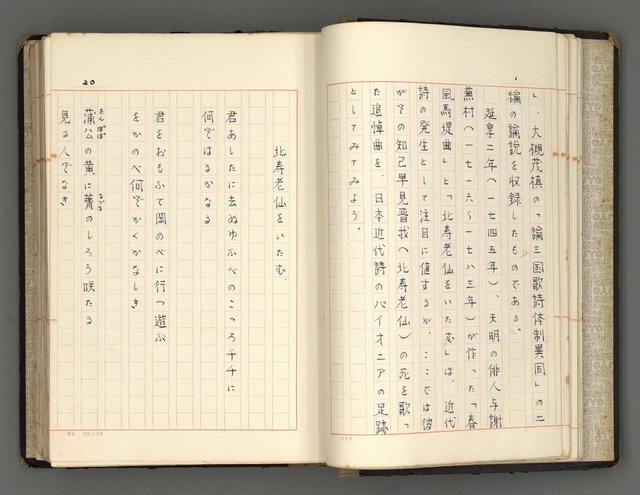 」、大槻茂槙の「論三国歌詩体制異同」の二
編の論説を収録したものである。
延享二年(一七四五年)、天明の俳人与謝
蕪村(一七一六〜一七八三年)が作った「春
風馬堤曲」と「北寿老仙をいたむ」は、近代
詩の発生として注目に値するが、ここでは彼
がその知己早見晋我(北寿老仙)の死を歌っ
た追悼曲を、日本近代詩のパイオニアの足跡
としてみてみよう。
20
北寿老仙をいたむ
君あしたに去ぬゆふべのこころ千千に
何ぞはるかなる
君をおもふて岡のべに行つ遊ぶ
をかのべ何ぞかくかなしき
蒲公の黄に薺のしろう咲たる
たんぽぽ
なづな
見る人ぞなき